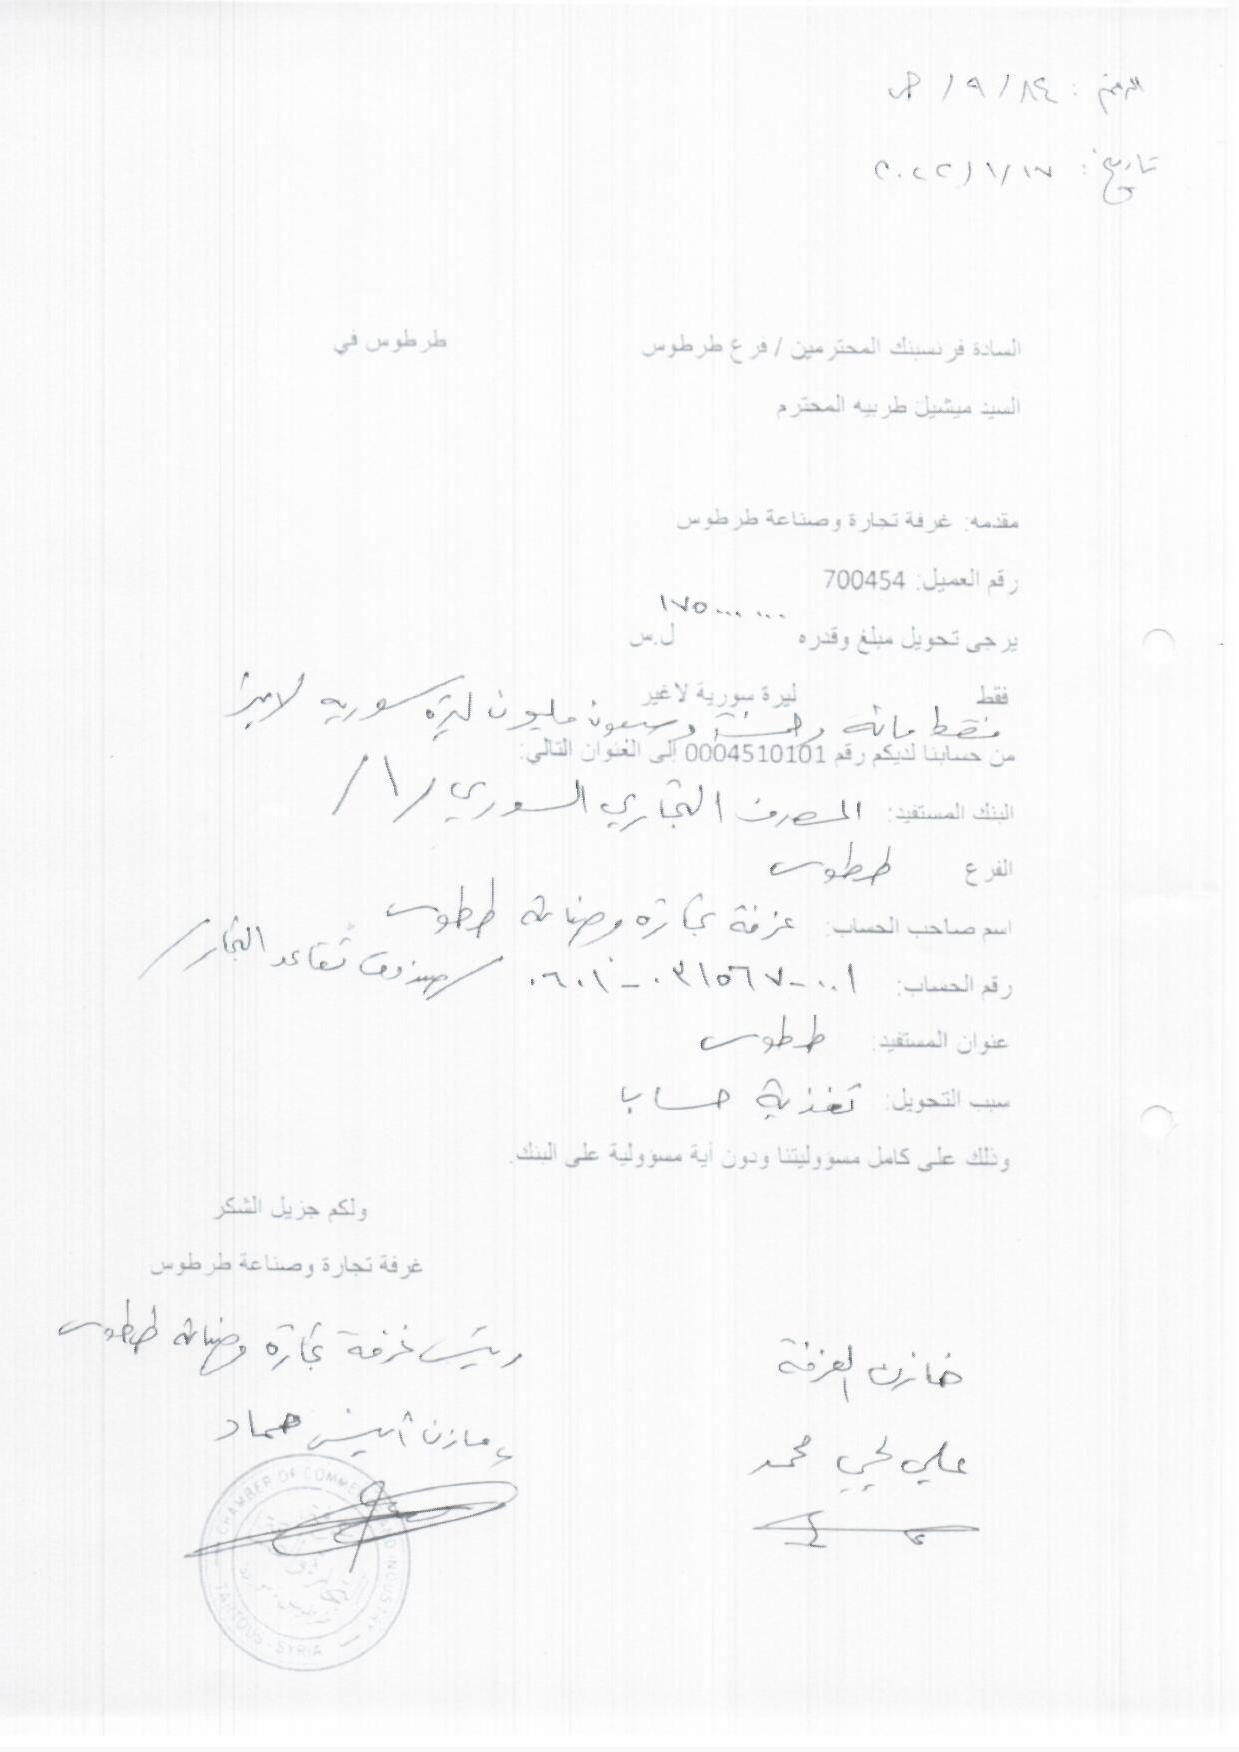 الرقم : ٨٤ / ٩ / ص
تاريخ : ١٧ / ١ / ٢٠٢٢
السادة فرنسبنك المحترمين / فرع طرطوس طرطوس في
السيد ميشيل طربيه المحترم
مقدمه: غرفة تجارة وصناعة طرطوس
رقم العميل: 700454
يرجى تحويل مبلغ وقدره ١٧٥٠٠٠٠٠٠ ل.س
فقط ليرة سورية لاغير
فقط مائة وخمسة وسبعون مليون ليرة سورية لاغير
من حسابنا لديكم رقم 0004510101 إلى العنوان التالي:
البنك المستفيد: المصرف التجاري السوري /١/
الفرع طرطوس
اسم صاحب الحساب: غرفة تجارة وصناعة طرطوس
رقم الحساب: ٠٦٠١-٠٣١٥٦٧-٠٠١ / صندوق تقاعد التجار /
عنوان المستفيد: طرطوس
سبب التحويل: تغذية حساب
وذلك على كامل مسؤوليتنا ودون أية مسؤولية على البنك.
ولكم جزيل الشكر
غرفة تجارة وصناعة طرطوس
خازن الغرفة رئيس غرفة تجارة وصناعة طرطوس
علي محمد مازن حماد
CHAMBER OF COMMERCE AND INDUSTRY
TARTOUS - SYRIA